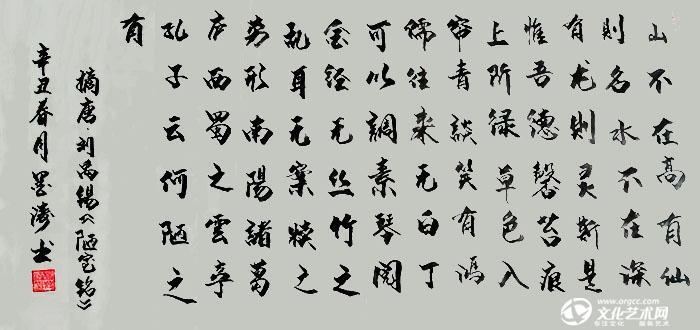 山不在高有仙
則名水不在深
有龙則灵斯是
惟吾德馨苔痕
上阶绿草色入
帘青談笑有鸿
儒往来无白丁
可以調素琴阅
金经无丝竹之
乱耳无案牍之
劳形南陽諸葛
庐西蜀之雲亭
孔子云何陋之
有
摘唐·刘禹锡《陋室铭》
辛丑春月墨涛书
www.orgcc.com
文化艺术网